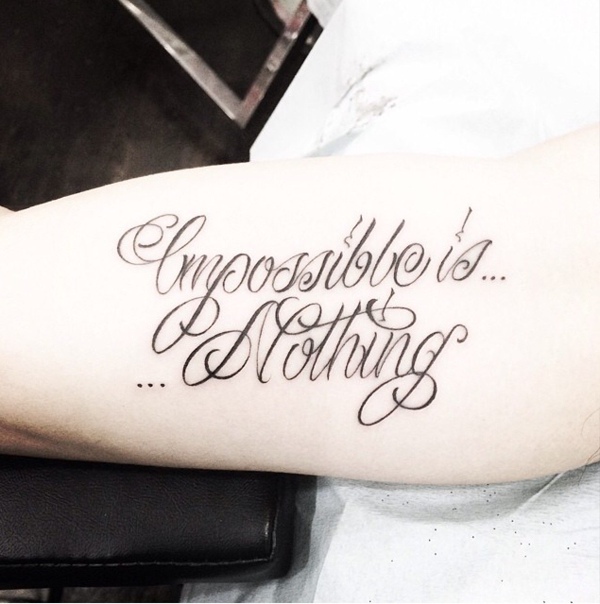 Impossible is...
...Nothing